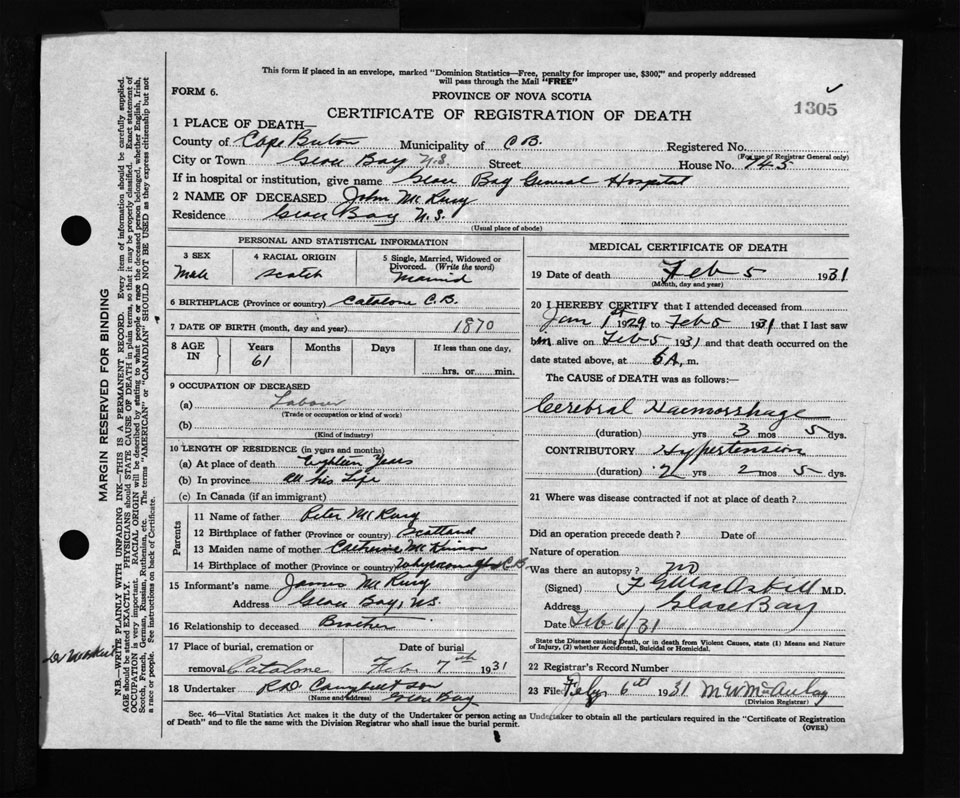 This form if placed in an envelope, marked "Dominion Statistics—Free, penalty for improper use, $300," and properly addressed
will pass through the Mail "FREE"
FORM 6.
PROVINCE OF NOVA SCOTIA
1305
CERTIFICATE OF REGISTRATION OF DEATH
1 PLACE OF DEATH—
County of Cape Breton Municipality of C B. Registered No.
(For use of Registrar General only)
City or Town Glace Bay N.S. Street House No. 145
If in hospital or institution, give name Glace Bay General Hospital
2 NAME OF DECEASED John Mc
Residence Glace Bay N.S.
(Usual place of abode)
PERSONAL AND STATISTICAL INFORMATION
3 SEX Male
4 RACIAL ORIGIN Scotch
5 Single, Married, Widowed or Divorced. (Write the word) Married
6 BIRTHPLACE (Province or country) Catalone C.B.
7 DATE OF BIRTH (month, day and year) 1870
8 AGE IN Years 61 Months Days If less than one day, hrs. or min.
9 OCCUPATION OF DECEASED
(a) Labour
(Trade or occupation or kind of work)
(b)
(Kind of industry)
10 LENGTH OF RESIDENCE (in years and months)
(a) At place of death Eighteen Years
(b) In province All his Life
(c) In Canada (if an immigrant)
Parents
11 Name of father Peter Mc
12 Birthplace of father (Province or country) Scotland
13 Maiden name of mother Catherine McKinnon
14 Birthplace of mother (Province or country) Whycocomagh C B
15 Informant's name James Mc
Address Glace Bay, N.S.
16 Relationship to deceased Brother
17 Place of burial, cremation or removal Catalone Date of burial Feb 7th 1931
18 Undertaker
(Name and address) Glace Bay
MEDICAL CERTIFICATE OF DEATH
19 Date of death Feb 5 1931
(Month, day and year)
20 I HEREBY CERTIFY that I attended deceased from
Jan 1st 1929 to Feb 5 1931 that I last saw
him alive on Feb 5 1931 and that death occurred on the
date stated above, at 6 A. m.
The CAUSE OF DEATH was as follows:—
Cerebral Haemorrhage
(duration) yrs 3 mos 5 dys.
CONTRIBUTORY Hypertension
(duration) 2 yrs 2 mos 5 dys.
21 Where was disease contracted if not at place of death?
Did an operation precede death? Date of
Nature of operation
Was there an autopsy? no
(Signed) M.D.
Address Glace Bay
Date Feb 6/31
State the Disease causing Death, or in death from Violent Causes, state (1) Means and Nature
of Injury, (2) whether Accidental, Suicidal or Homicidal.
22 Registrar's Record Number
23 Filed Feby 6th 1931 M W McAulay
(Division Registrar)
Sec. 46—Vital Statistics Act makes it the duty of the Undertaker or person acting as Undertaker to obtain all the particulars required in the "Certificate of Registration
of Death" and to file the same with the Division Registrar who shall issue the burial permit.
(OVER)
MARGIN RESERVED FOR BINDING
N.B.—WRITE PLAINLY WITH UNFADING INK—THIS IS A PERMANENT RECORD. Every item of information should be carefully supplied.
AGE should be stated EXACTLY. PHYSICIANS should STATE CAUSE OF DEATH in plain terms, so that it may be properly classified. Exact statement of
OCCUPATION is very important. RACIAL ORIGIN will be described by stating to what people or race the deceased person belonged, whether English, Irish,
Scotch, French, German, Russian, Ruthenian, etc. The terms "AMERICAN" or "CANADIAN" SHOULD NOT BE USED as they express citizenship but not
a race or people. See instructions on back of Certificate.